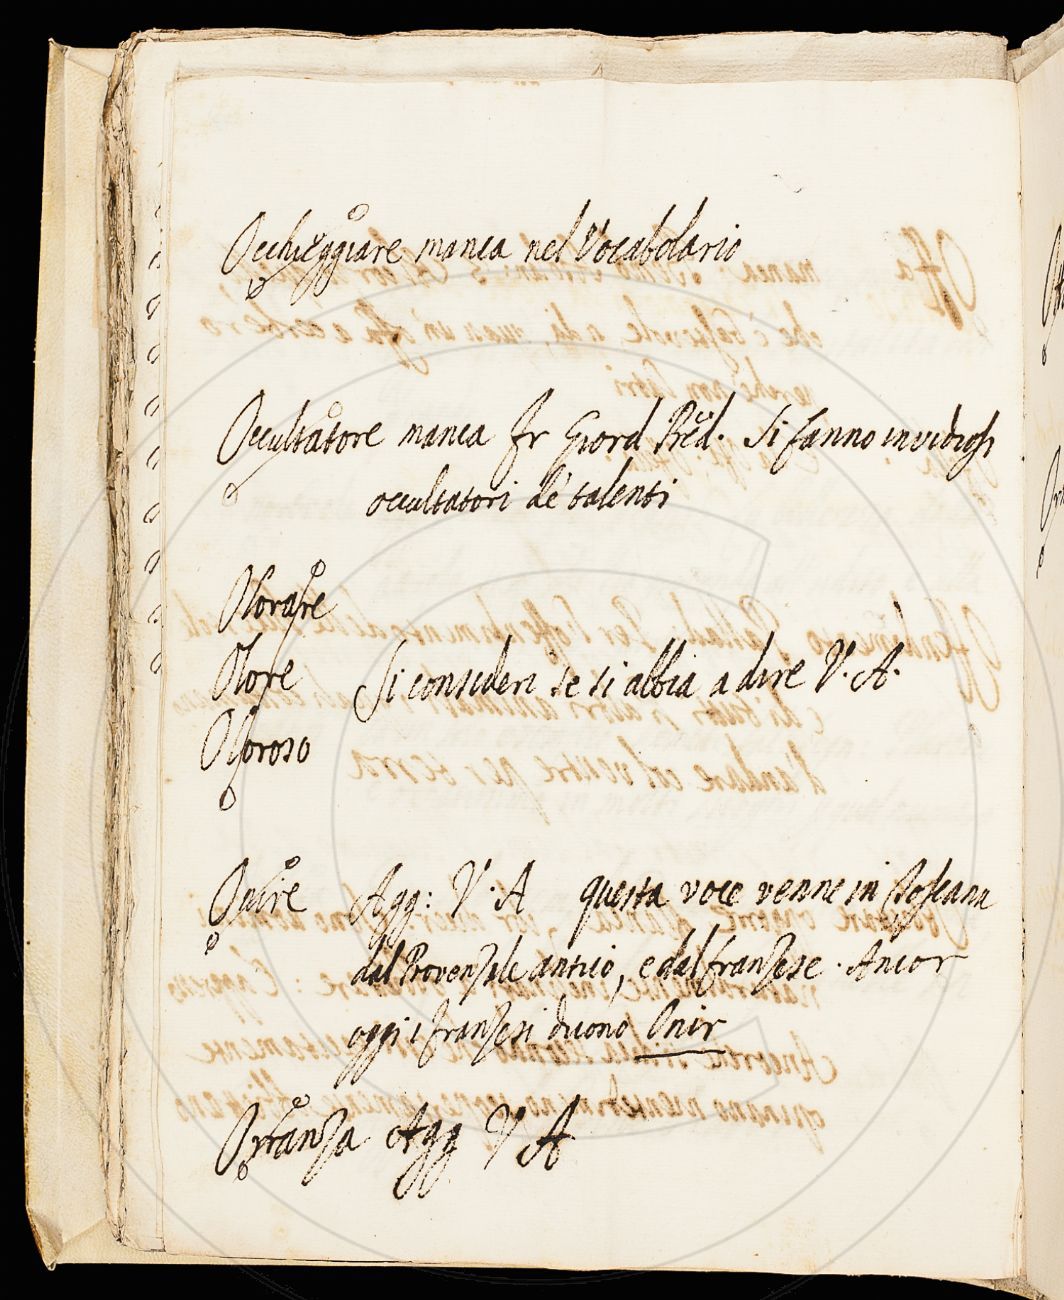 Occhieggiare manca nel Vocabolario
Occultatore manca Fr Giord Pred. Si fanno invidiosi
occultatori de talenti
Olorare
Olore Si consideri se si abbia a dire V. A.
Oloroso
Agg: V. A questa voce venne in Toscana
dal Provenzale antico, e dal franzese. Ancor
oggi i franzesi dicono
Orranza Agg V A